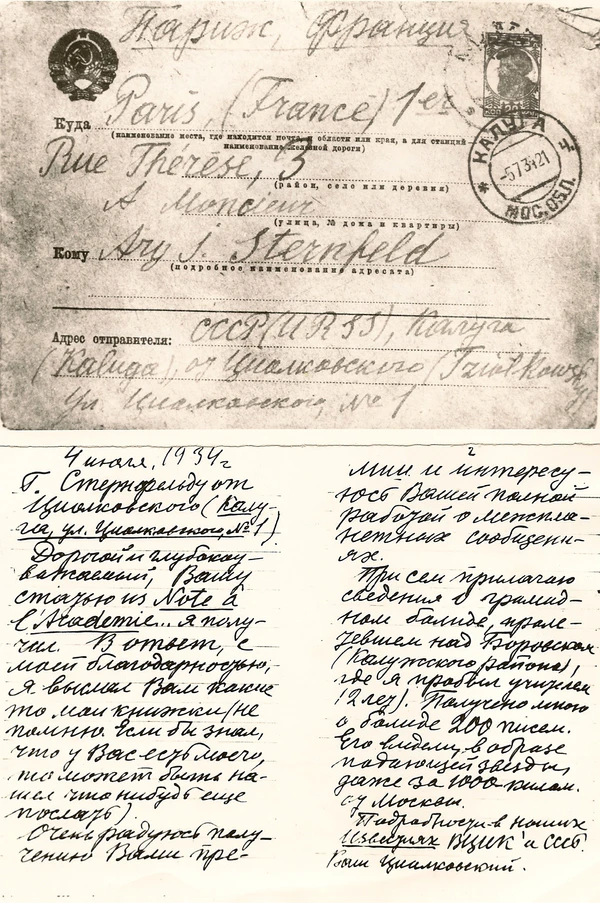 Париж, Франция
Куда Paris, (France) 1er
(наименование места, где находится почта, и области или края, а для станций
наименование железной дороги)
Rue Thérèse, 3
(район, село или деревня)
A Monsieur
(улица, № дома и квартиры)
Кому Ary J. Sternfeld
(подробное наименование адресата)
КАЛУГА
МОС.ОБЛ.
Адрес отправителя: СССР (URSS), Калуга
(Kaluga), от Циолковского (Tziolkowsky)
ул. Циолковского, № 1
4 июля, 1934 г
Г. Стернфельду от
Циолковского (Калу-
га, ул. Циолковского, № 1)
Дорогой и глубокоу-
важаемый, Вашу
статью из Note à
l'Academie... я полу-
чил. В ответ, с
моей благодарностью,
я выслал Вам какие
то мои книжки (не
помню. Если бы знал,
что у Вас есть моего,
то может быть на-
шел что нибудь еще
послать).
Очень радуюсь полу-
чению Вами пре-
мии и интересу-
юсь Вашей полной
работой о межпла-
нетных сообщени-
ях.
При сем прилагаю
сведения о громад-
ном болиде, проле-
тевшем над Боровском
(Калужского района),
где я пробыл учителем
12 лет). Получено мною
о болиде 200 писем.
Его видели в образе
падающей звезды
даже за 1000 килом.
от Москвы.
Подробности в наших
Известиях ВЦИК'а СССР.
Ваш Циолковский.